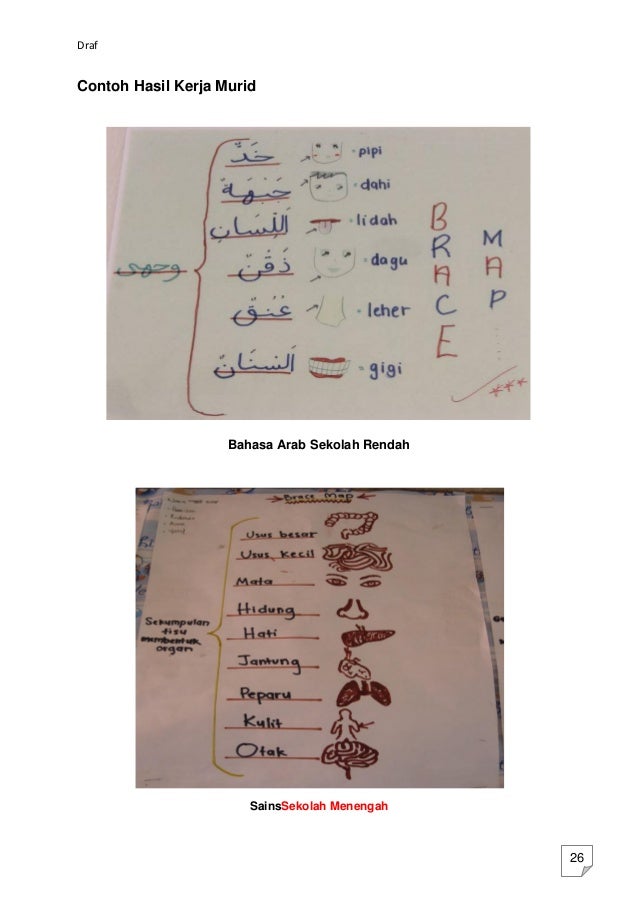 Draf
Contoh Hasil Kerja Murid
وجهى
خَدٌّ = pipi
جَبْهَةٌ = dahi
اَللِّسَانِ = lidah
ذَقْنٌ = dagu
عُنُقٌ = leher
اَلسنَانٌ = gigi
BRACE
MAP
Bahasa Arab Sekolah Rendah
Brace Map
Sekumpulan
tisu
membentuk
organ
Usus besar
Usus kecil
Mata
Hidung
Hati
Jantung
Peparu
Kulit
Otak
SainsSekolah Menengah
26